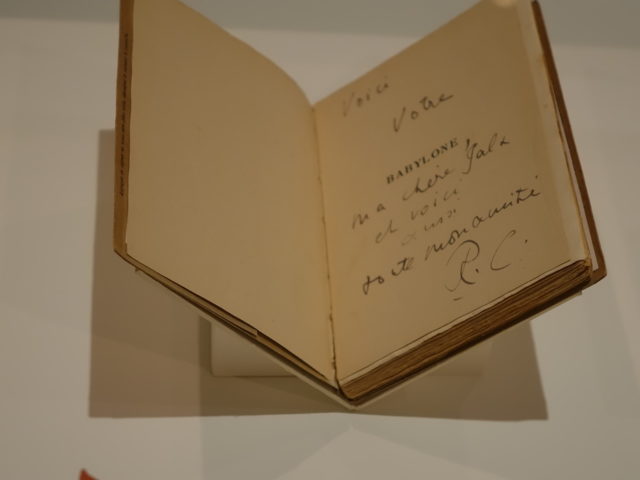 Voici
Votre
BABYLONE,
ma chère Gala
et voici
aussi
toute mon amitié
R. C.